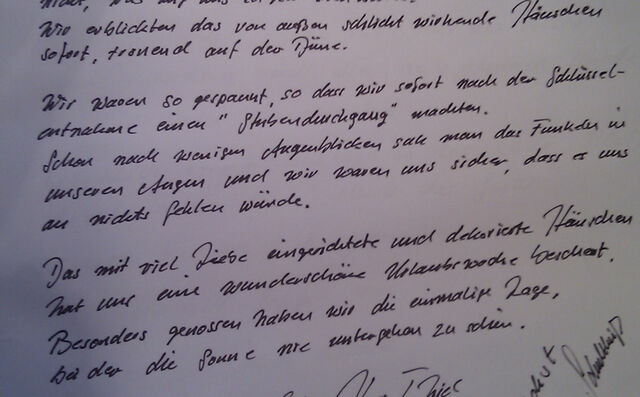 nicht, was auf uns
Wir erblickten das von außen schlicht wirkende Häuschen
sofort, tronend auf der Düne.
Wir waren so gespannt, so dass wir sofort nach der Schlüssel-
entnahme einen "Stubendurchgang" machten.
Schon nach wenigen Augenblicken sah man das Funkeln in
unseren Augen und wir waren uns sicher, dass es uns
an nichts fehlen würde.
Das mit viel Liebe eingerichtete und dekorierte Häuschen
hat uns eine wunderschöne Urlaubswoche beschert.
Besonders genossen haben wir die einmalige Lage,
bei der die Sonne nie unterzugehen schien.